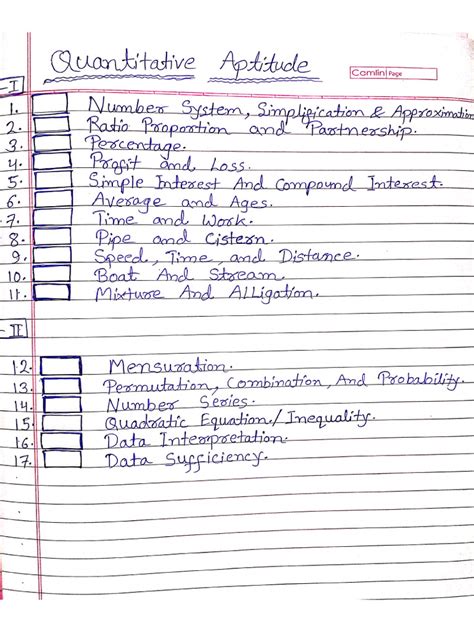 Quantitative Aptitude
Camlin Page
I
1. Number System, Simplification & Approximation
2. Ratio Proportion and Partnership.
3. Percentage.
4. Profit and Loss.
5. Simple Interest And Compound Interest.
6. Average and Ages.
7. Time and Work.
8. Pipe and Cistern.
9. Speed, Time, and Distance.
10. Boat And Stream.
11. Mixture And Alligation.
II
12. Mensuration.
13. Permutation, Combination, And Probability.
14. Number Series.
15. Quadratic Equation / Inequality.
16. Data Interpretation.
17. Data Sufficiency.